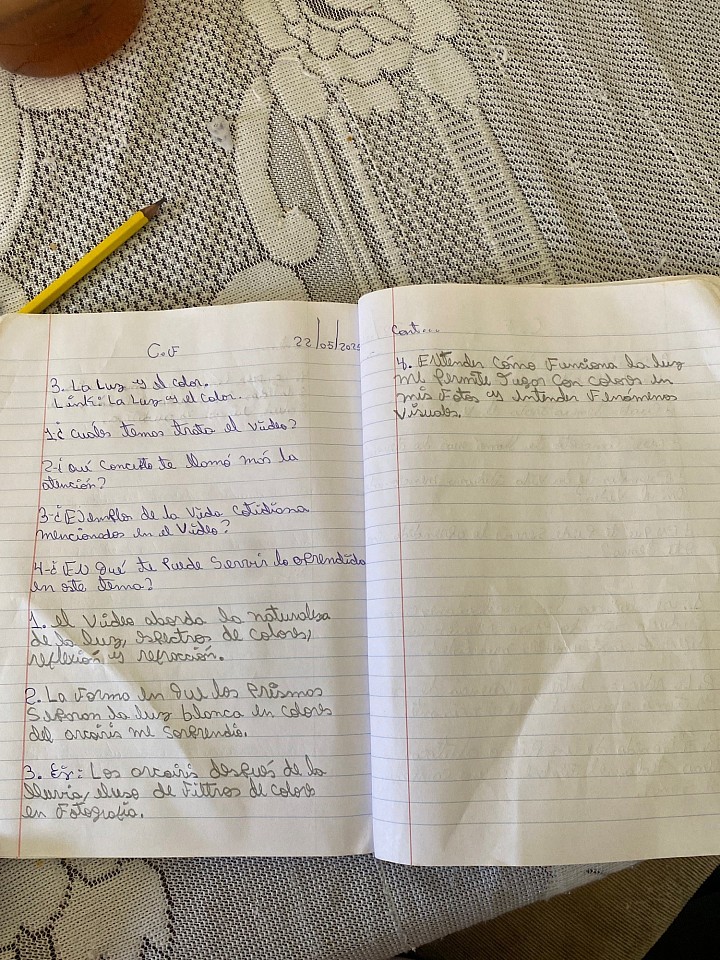 C.F
22/05/2025
3. La Luz y el color.
Link: La Luz y el color.
1¿ cuales temas trata el Video?
2-¿ qué Concepto te llamó más la
atención?
3-¿(E)Jemplos de la Vida cotidiana
mencionados en el Video?
4-¿(E)n Qué te Puede Servir lo aprendido
en este tema?
1. el Video aborda la naturalesa
de la luz, espectros de colores,
reflexión y refracción.
2. La Forma en Que los Prismas
Separan la luz blanca en colores
del arcoiris me Sorprendio.
3. Ej: Los arcoiris después de la
lluvia, eluso de Filtros de colores
en Fotografía.
Cont...
4. Entender Cómo Funciona la luz
me Permite Jugar Con colores en
mis Fotos y entender Fenómenos
Visuales.